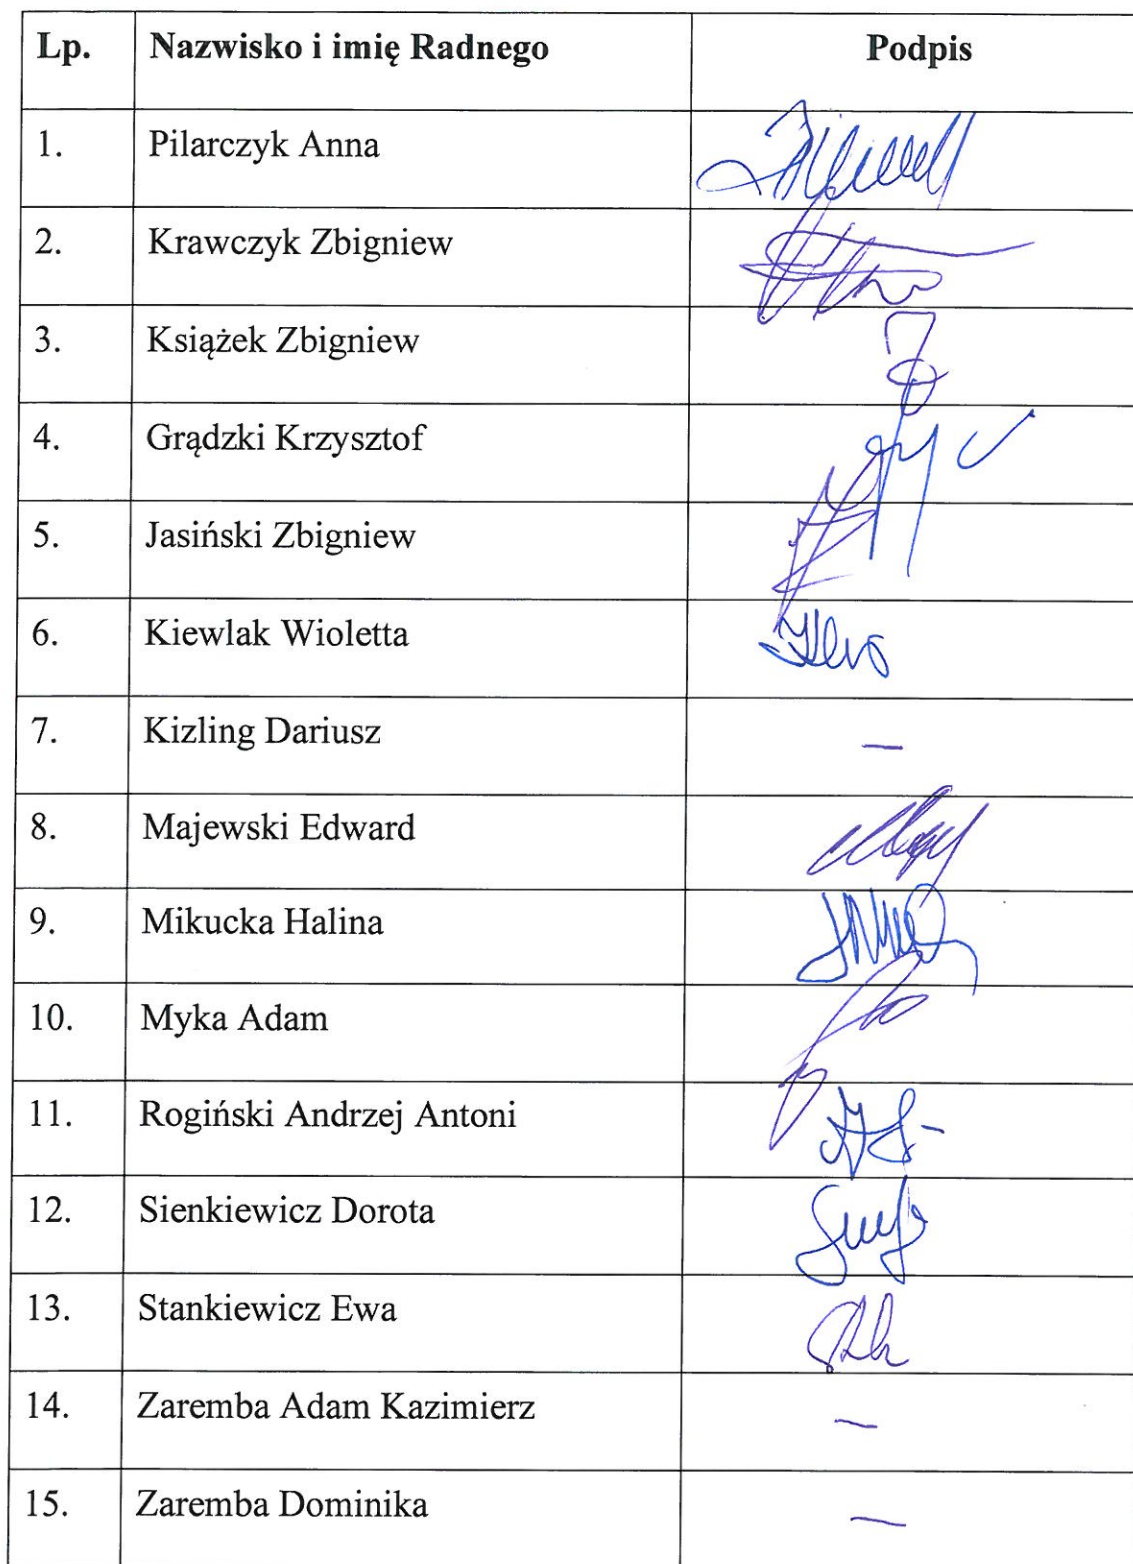 Lp. Nazwisko i imię Radnego Podpis
1. Pilarczyk Anna
2. Krawczyk Zbigniew
3. Książek Zbigniew
4. Grądzki Krzysztof
5. Jasiński Zbigniew
6. Kiewlak Wioletta
7. Kizling Dariusz —
8. Majewski Edward
9. Mikucka Halina
10. Myka Adam
11. Rogiński Andrzej Antoni
12. Sienkiewicz Dorota
13. Stankiewicz Ewa
14. Zaremba Adam Kazimierz —
15. Zaremba Dominika —